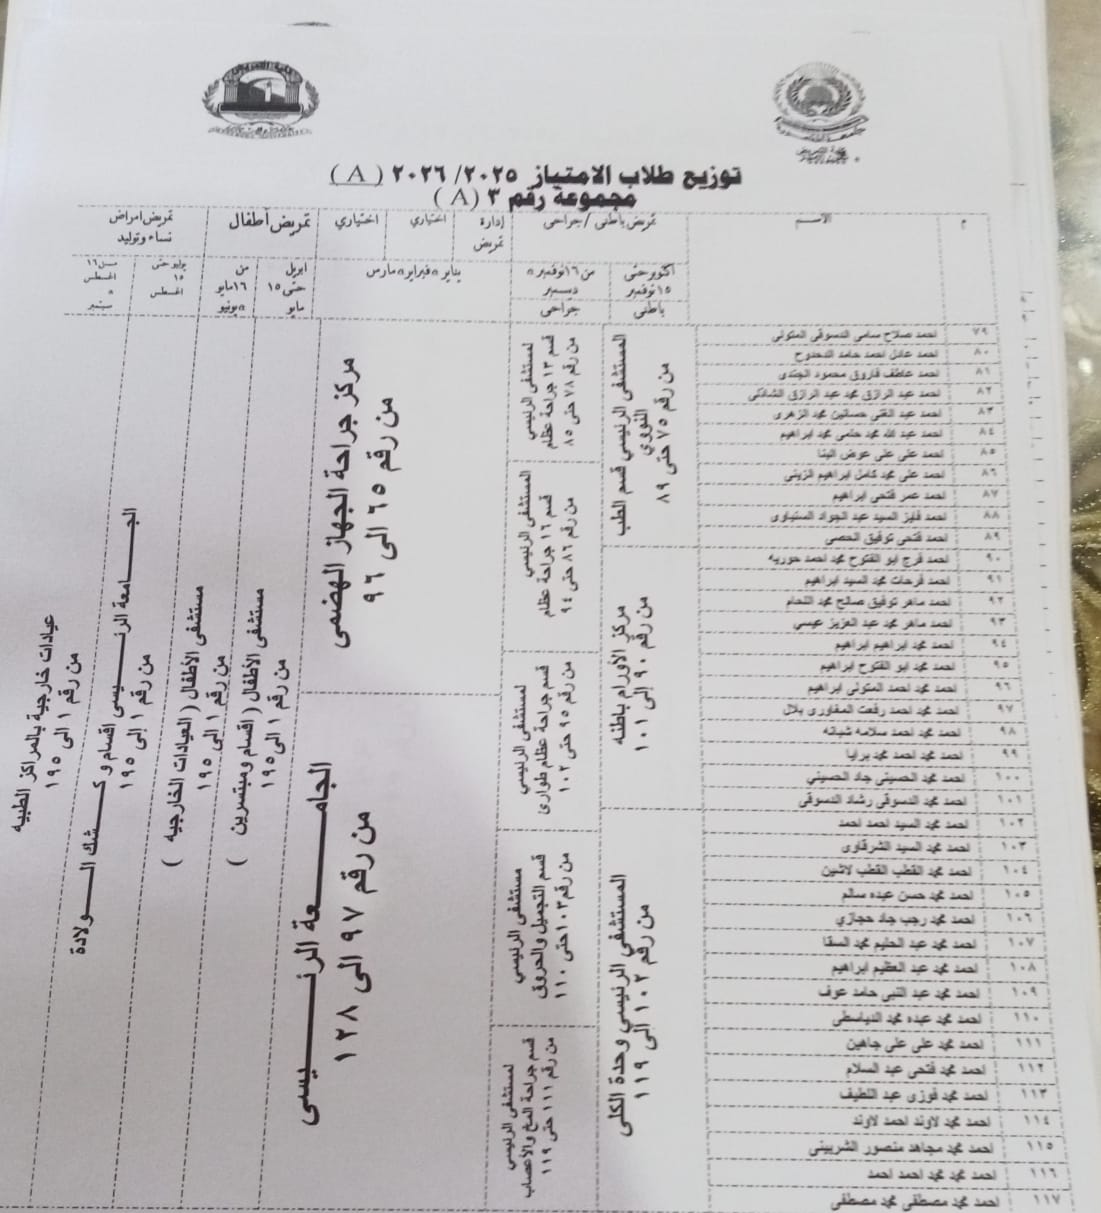 توزيع طلاب الامتياز ٢٠٢٥/ ٢٠٢٦ ( A )
مجموعة رقم ٣ ( A )
م
الاسم
تمريض باطنى / جراحى
إدارة تمريض
اختياري
اختياري
تمريض أطفال
تمريض امراض نساء وتوليد
أكتوبر حتى ١٥ نوفمبر باطنى
من ١٦ نوفمبر & ديسمبر جراحى
يناير & فبراير & مارس
ابريل حتى ١٥ مايو
من ١٦ مايو & يونيو
يوليو حتى ١٥ اغسطس
من ١٦ اغسطس & سبتمبر
٧٩ احمد صلاح سامى الدسوقى المتولى
٨٠ احمد عادل احمد حامد الدحدوح
٨١ احمد عاطف فاروق محمود الجندى
٨٢ احمد عبد الرازق محمد عبد الرازق الشاذلى
٨٣ احمد عبد الغنى حسانين محمد الزهرى
٨٤ احمد عبد الله محمد حلمى محمد ابراهيم
٨٥ احمد على على عوض البنا
٨٦ احمد على محمد كامل ابراهيم الزينى
٨٧ احمد عمر فتحى ابراهيم
٨٨ احمد فايز السيد عبد الجواد السنباوى
٨٩ احمد فتحى توفيق الحصى
٩٠ احمد فرج ابو الفتوح محمد احمد حوريه
٩١ احمد فرحات محمد السيد ابراهيم
٩٢ احمد ماهر توفيق صالح محمد اللحام
٩٣ احمد ماهر محمد عبد العزيز عيسى
٩٤ احمد محمد ابراهيم ابراهيم
٩٥ احمد محمد ابو الفتوح ابراهيم
٩٦ احمد محمد احمد المتولى ابراهيم
٩٧ احمد محمد احمد رفعت المغاورى بلال
٩٨ احمد محمد احمد سلامه شبانه
٩٩ احمد محمد احمد محمد برايا
١٠٠ احمد محمد الحسينى جاد الحسينى
١٠١ احمد محمد الدسوقى رشاد الدسوقى
١٠٢ احمد محمد السيد احمد احمد
١٠٣ احمد محمد السيد الشرقاوى
١٠٤ احمد محمد القطب القطب لاشين
١٠٥ احمد محمد حسن عبده سالم
١٠٦ احمد محمد رجب جاد حجازي
١٠٧ احمد محمد عبد الحليم محمد السقا
١٠٨ احمد محمد عبد العظيم ابراهيم
١٠٩ احمد محمد عبد النبى حامد عوف
١١٠ احمد محمد عبده محمد الدياسطى
١١١ احمد محمد على على جاهين
١١٢ احمد محمد فتحى عبد السلام
١١٣ احمد محمد فوزى عبد اللطيف
١١٤ احمد محمد لاوند احمد لاوند
١١٥ احمد محمد مجاهد منصور الشربينى
١١٦ احمد محمد محمد احمد احمد
١١٧ احمد محمد مصطفى محمد مصطفى
المستشفى الرئيسي قسم الطب النووي
من رقم ٧٥ حتى ٨٩
مركز الأورام باطنه
من رقم ٩٠ الى ١٠١
المستشفي الرئيسي وحدة الكلى
من رقم ١٠٢ الى ١١٩
لمستشفى الرئيسي
قسم ١٣ جراحة عظام
من رقم ٧٨ حتى ٨٥
المستشفى الرئيسي
قسم ١٦ جراحة عظام
من رقم ٨٦ حتى ٩٤
لمستشفى الرئيسي
قسم جراحة عظام طوارئ
من رقم ٩٥ حتى ١٠٢
مستشفى الرئيسي
قسم التجميل والحروق
من رقم ١٠٣ حتى ١١٠
لمستشفى الرئيسي
قسم جراحة المخ والأعصاب
من رقم ١١١ حتى ١١٩
مركز جراحة الجهاز الهضمى
من رقم ٦٥ الى ٩٦
الجامعة الرئيسى
من رقم ٩٧ الى ١٢٨
مستشفى الأطفال ( اقسام ومبتسرين )
من رقم ١ الى ١٩٥
مستشفى الأطفال ( العيادات الخارجيه )
من رقم ١ الى ١٩٥
الجامعة الرئيسى اقسام وكشك الولادة
من رقم ١ الى ١٩٥
عيادات خارجية بالمراكز الطبيه
من رقم ١ الى ١٩٥